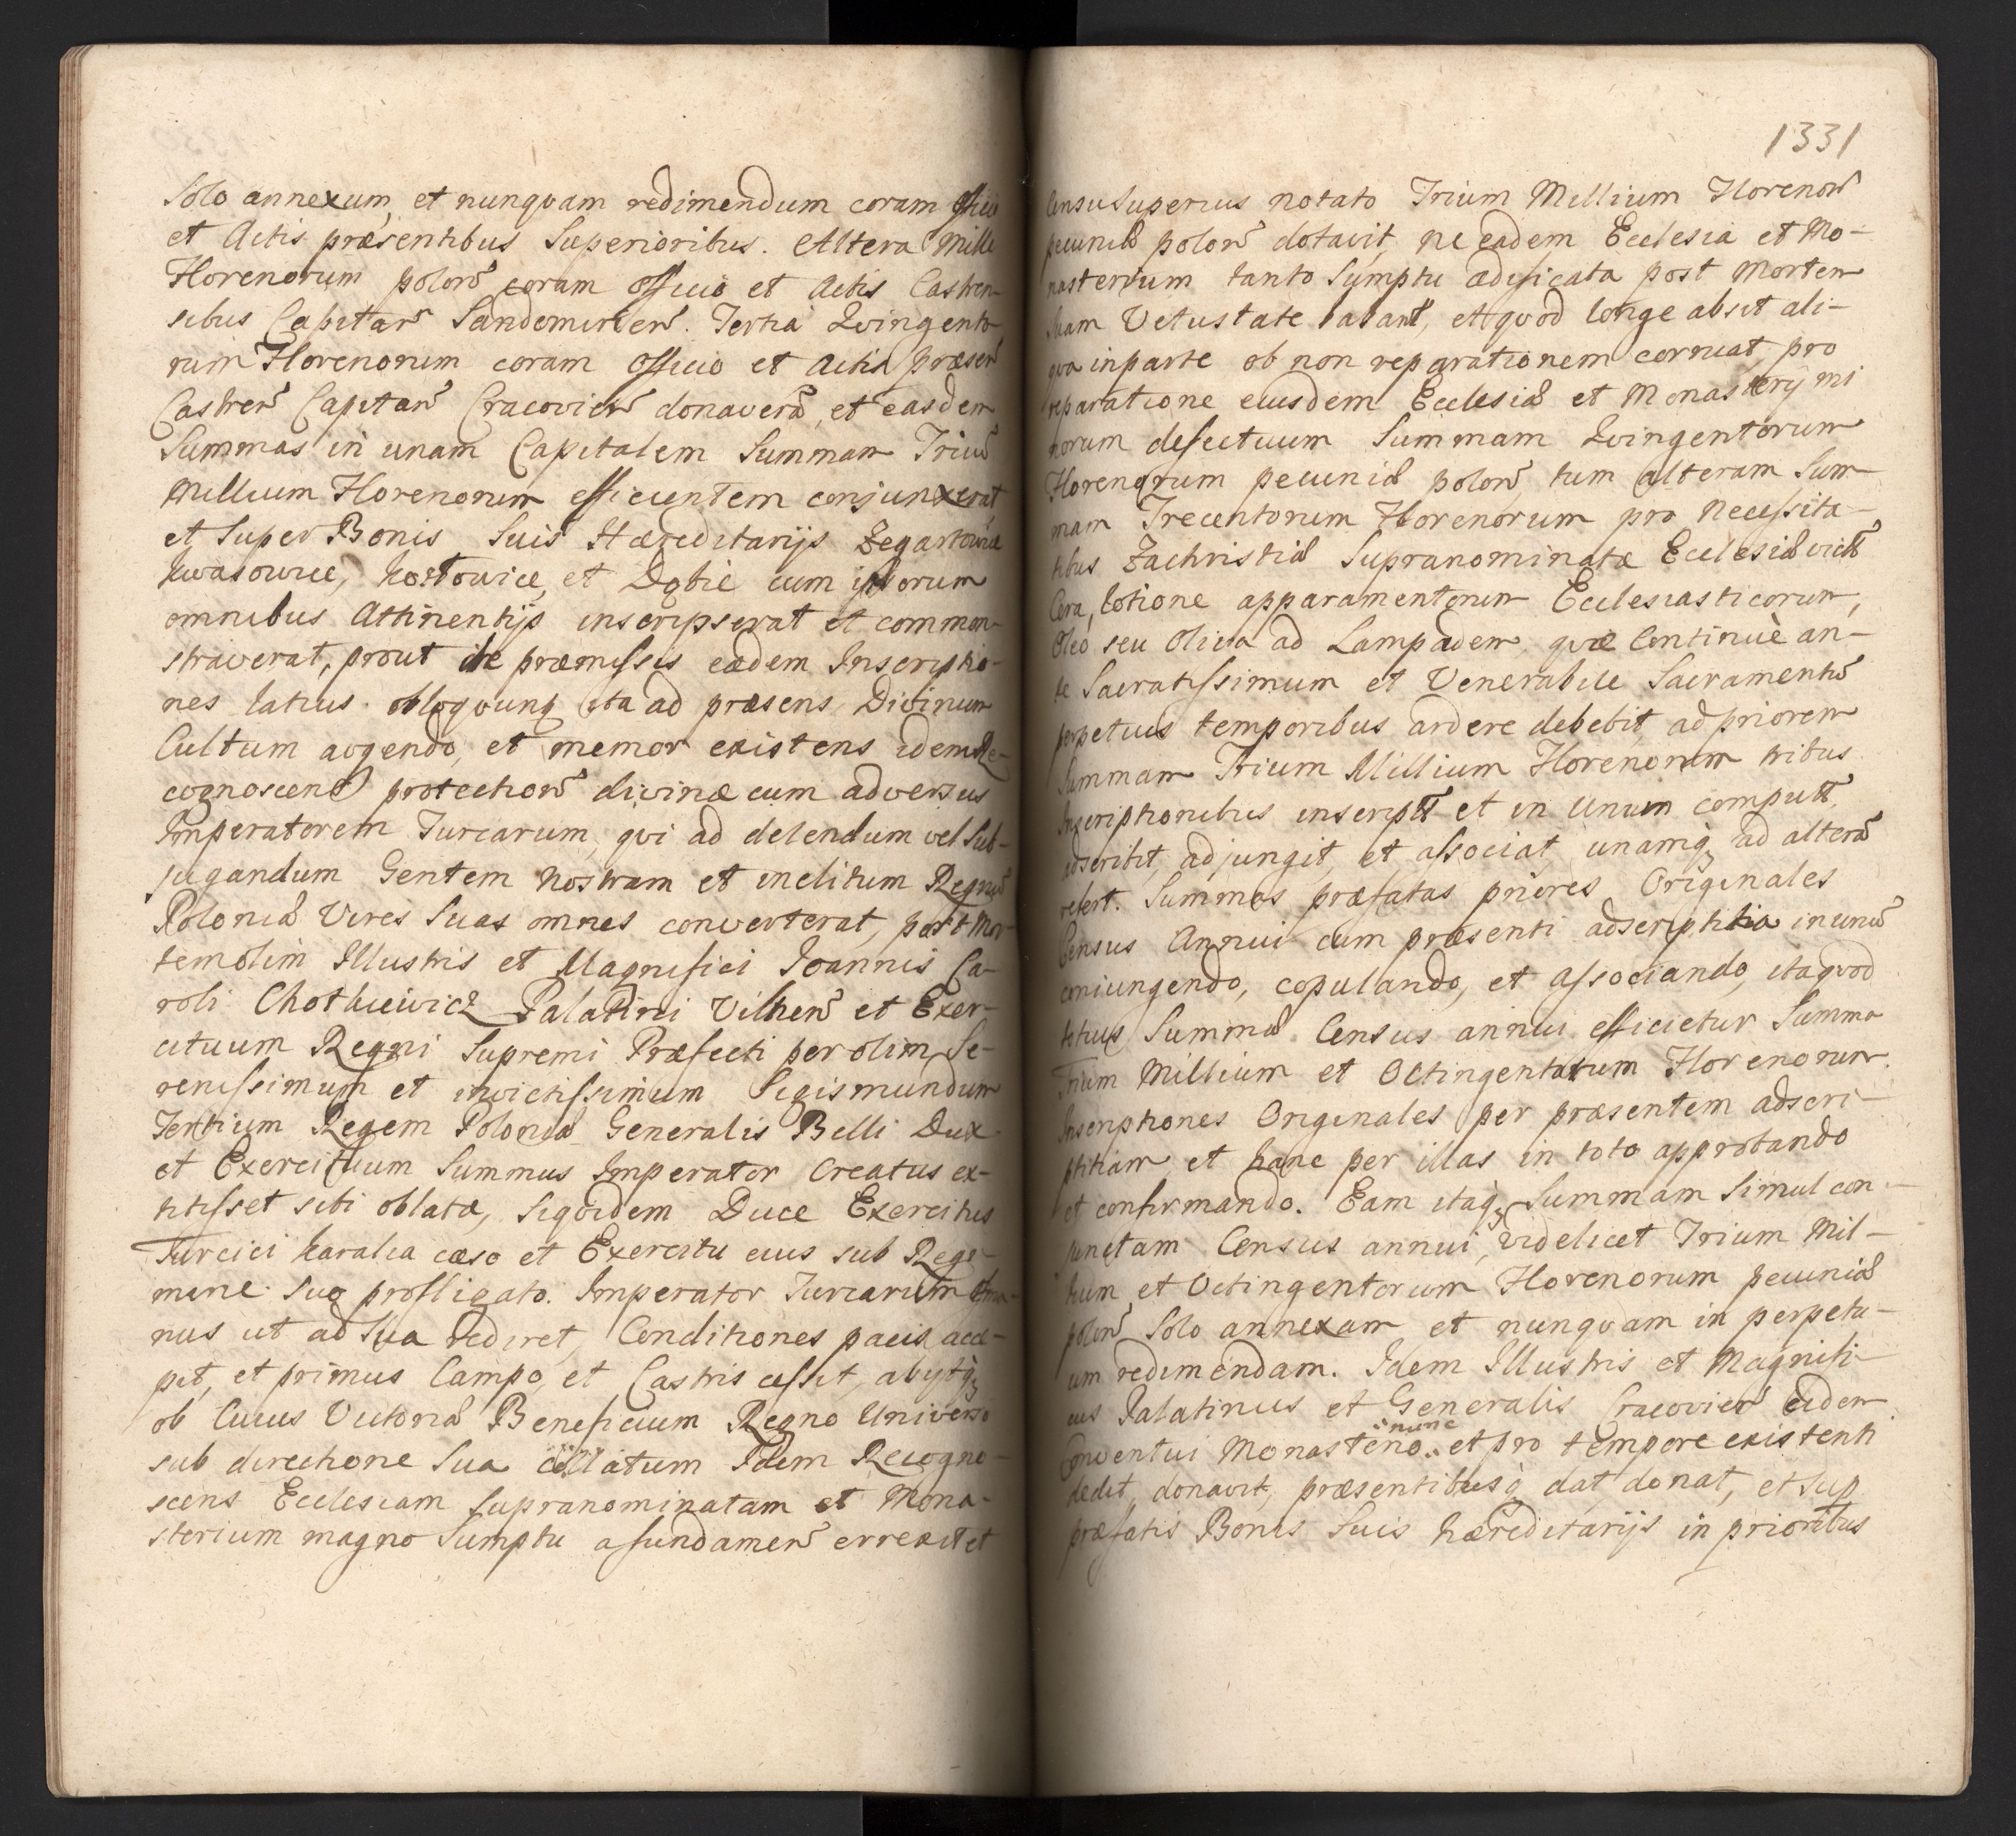 Solo annexum, et nunqvam redimendum coram officio
et Actis præsentibus Superioribus. Altera Mille
Florenorum poloñ coram officio et Actis Castren-
sibus Capitañ Sandomirieñ. Tertia Qvingento
rum Florenorum coram officio et Actis præseñ
Castreñ Capitañ Cracovieñ donaverã, et easdem
Summas in unam Capitalem Summam Triũ
Millium Florenorum efficientem conjunxerat
et super Bonis Suis Hæreditarijs Zegartowice
kwasowice, kostowice, et Dąbie cum ipsorum
omnibus Attinentijs inscripserat et common-
straverat, prout de præmissis eædem Inscriptio-
nes latius obloqvunt ita ad præsens Divinum
Cultum avgendo, et memor existens idem Re-
cognoscens protectioñ divinæ cum adversus
Imperatorem Turcarum, qvi ad delendum vel Sub-
jugandum Gentem nostram et inclitum Regnũ
Poloniæ Vires Suas omnes converterat, post Mor-
tem olim Illustris et Magnifici Joannis Ca-
roli Chotkiewicz Palatini Vilneñ et Exer-
cituum Regni Supremi Præfecti per olim Se-
renissimum et invictissimum Sigismundum
Tertium Regem Poloniæ Generalis Belli Dux
et Exercituum Summus Imperator Creatus ex-
titisset sibi oblatæ, Siqvidem Duce Exercitus
Turcici karalia cæso et Exercitu eius sub Regi-
mine Suo profligato. Imperator Turcarum
nus ut ad sua rediret, Conditiones pacis acce-
pit, et primus Campo, et Castris cessit, abijtq
ob Cuius Victoriæ Beneficium Regno Universo
sub directione Sua collatum Idem Recogno-
scens Ecclesiam supranominatam et Mona-
sterium magno Sumptu a fundameñ errexit et
1331
Censu Superius notato Trium Millium Florenoñ
pecuniæ poloñ dotavit, ne eadem Ecclesia et Mo-
nasterium tanto Sumptu ædificata post mortem
suam Vetustate et qvod longe absit ali-
qva in parte ob non reparationem corruat, pro
reparatione eiusdem Ecclesiæ et Monasterij mi
norum defectuum Summam Qvingentorum
Florenorum pecuniæ poloñ, tum alteram Sum
mam Trecentorum Florenorum pro necessita-
tibus Zachristiæ Supranominatæ Ecclesiæ
Cera, lotione apparamentorum Ecclesiasticorum,
Oleo seu Oliva ad Lampadem, qvæ Continuè an-
te Sacratissimum et Venerabile Sacramentũ
perpetuis temporibus ardere debebit, ad priorem
Summam Trium Millium Florenorum tribus
Inscriptionibus inscriptã et in Unum computã
adscribit, adjungit, et associat, unamq ad alterã
refert. Summas præfatas priores Originales
Census Annui cum præsenti adscriptitia in unũ
coniungendo, copulando, et associando, itaqvod
totius Summæ Census annui efficietur Summa
Trium Millium et Octingentorum Florenorum.
Inscriptiones Originales per præsentem adscri-
ptitiam et hanc per illas in toto approbando
et confirmando. Eam itaq Summam Simul con-
junctam Census annui, videlicet Trium Mil-
lium et Octingentorum Florenorum pecuniæ
poloñ Solo annexam et nunqvam in perpetu-
um redimendam. Idem Illustris et Magnifi-
cus Palatinus et Generalis Cracovieñ eidem
Conventui Monasterio nunc et pro tempore existenti
dedit, donavit, præsentibusq dat donat, et sup
præfatis Bonis Suis hæreditarijs in prioribus